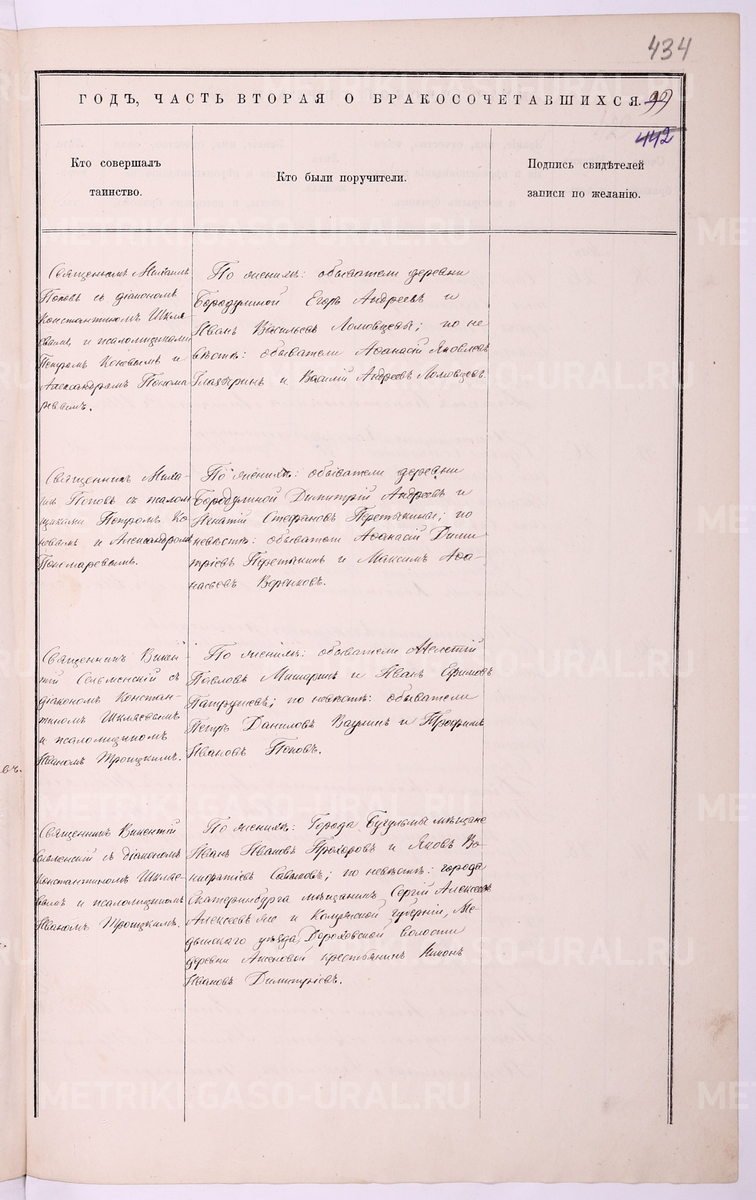 434
ГОДЪ, ЧАСТЬ ВТОРАЯ О БРАКОСОЧЕТАВШИХСЯ. 99
442
Кто совершалъ
таинство.
Кто были поручители.
Подпись свидѣтелей
записи по желанію.
Священникъ Михаилъ
Поповъ съ діакономъ
Константиномъ Шкля
евымъ и псаломщиками
Петромъ Коневымъ и
Александромъ Понома
ревымъ.
По женихѣ: обыватели деревни
Бородулиной Егоръ Андреевъ и
Иванъ Васильевъ Ломовцевы; по не
вѣстѣ: обыватели Аѳанасій Яковлевъ
и Василій Андреевъ Ломовцевъ.
Священникъ Миха
илъ Поповъ съ псалом
щиками Петромъ Ко
невымъ и Александромъ
Пономаревымъ.
По женихѣ: обыватели деревни
Бородулиной Димитрій Андреевъ и
Игнатій Стефановъ Перетыкины; по
невѣстѣ: обыватели Аѳанасій Дими
тріевъ Перетыкинъ и Максимъ Аѳа
насьевъ
Священникъ Викен
тій съ
діакономъ Констан-
тиномъ Шкляевымъ
и псаломщикомъ
Иваномъ Троицкимъ.
По женихѣ: обыватели
Павловъ и Иванъ Ефимовъ
по невѣстѣ: обыватели
Петръ Даниловъ Ваулинъ и
Ивановъ Поповъ.
Священникъ Викентій
съ діакономъ
Константиномъ Шкляе
вымъ и псаломщикомъ
Иваномъ Троицкимъ.
По женихѣ: города Бугульмы мѣщане
Иванъ Ивановъ Прохоровъ и Яковъ Во
нифатіевъ по невѣстѣ: города
Екатеринбурга мѣщанинъ Сергій Алексеевъ
и Калужской губерніи, Ме
дынскаго уѣзда, Дороховской волости
деревни крестьянинъ
Ивановъ Димитріевъ.
METRIKI.GASO-URAL.RU